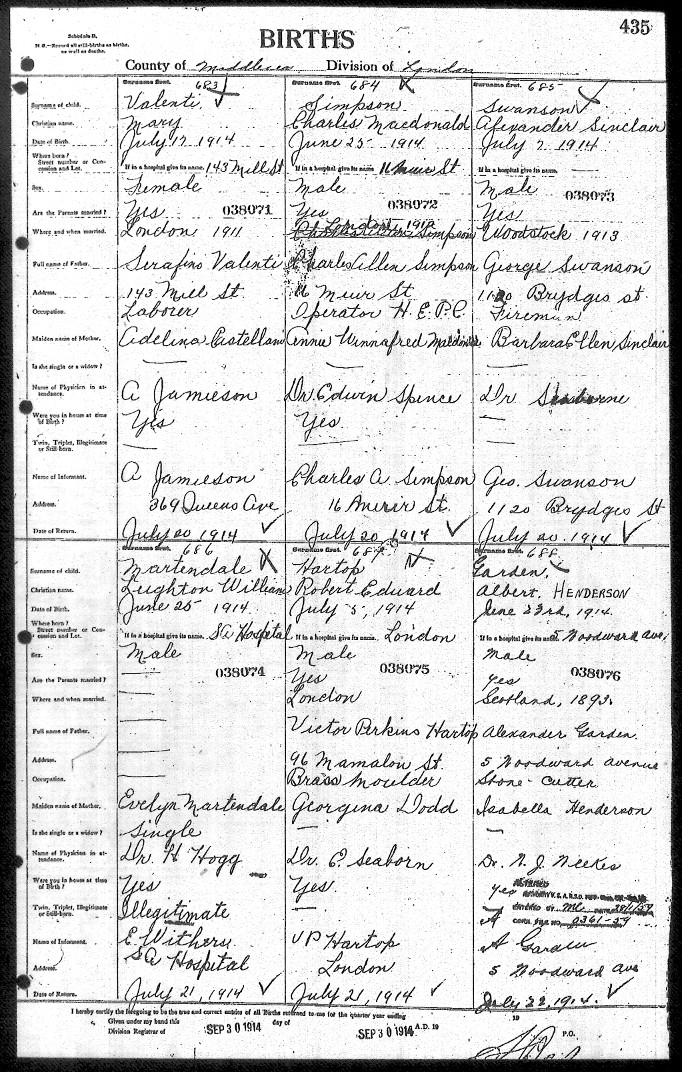 435
Schedule B.
N.B.—Record all still-births as births, as well as deaths.
BIRTHS
County of Middlesex Division of London
Surname first. 683 Surname first. 684 Surname first. 685
Surname of child. Valenti Simpson Swanson
Christian name. Mary Charles Macdonald Alexander Sinclair
Date of Birth. July 17 1914 June 25 1914 July 7 1914
Where born? Street number or Concession and Lot. If in a hospital give its name. 143 Mill St If in a hospital give its name 16 Muir St If in a hospital give its name. —
Sex. Female Male Male
038071 038072 038073
Are the Parents married? Yes Yes Yes
Where and when married. London 1911 London Simpson Woodstock 1913
Full name of Father. Serafino Valenti Charles Allen Simpson George Swanson
Address. 143 Mill St 16 Muir St. 1120 Brydges st
Occupation. Labourer Operator H.E.P.C. Fireman
Maiden name of Mother. Adelina Castellani Annie Winnafred Barbara Ellen Sinclair
Is she single or a widow? — — —
Name of Physician in attendance. A Jamieson Dr. Edwin Spence Dr
Were you in house at time of Birth? Yes Yes —
Twin, Triplet, Illegitimate or Still-born. — — —
Name of Informant. A Jamieson Charles A. Simpson Geo. Swanson
Address. 369 Queens Ave 16 St. 1120 Brydges St
Date of Return. July 20 1914 July 20, 1914 July 20. 1914
Surname first. 686 Surname first. 687 Surname first. 688
Surname of child. Martendale Hartop Garden
Christian name. Leighton William Robert Eduard Albert. HENDERSON
Date of Birth. June 25 1914 July 5, 1914 June 23rd, 1914.
Where born? Street number or Concession and Lot. If in a hospital give its name. SA Hospital If in a hospital give its name. London If in a hospital give its name. 5 Woodward ave.
Sex. Male Male Male
038074 038075 038076
Are the Parents married? — Yes yes
Where and when married. — London Scotland, 1893.
Full name of Father. — Victor Perkins Hartop Alexander Garden.
Address. — 96 Mamalon St. 5 Woodward avenue
Occupation. — Brass Moulder Stone-Cutter
Maiden name of Mother. Evelyn Martendale Georgina Dodd Isabella Henderson
Is she single or a widow? Single — —
Name of Physician in attendance. Dr. H Hogg Dr. E. Seaborn Dr. N. J. Neekes
Were you in house at time of Birth? Yes Yes. yes
Twin, Triplet, Illegitimate or Still-born. Illegitimate — —
0361-59
Name of Informant. E. Withers V P Hartop A Garden
Address. SA Hospital London 5 Woodward ave
Date of Return. July 21, 1914 July 21, 1914 July 22, 1914.
I hereby certify the foregoing to be the true and correct entries of all Births returned to me for the quarter year ending 19
Given under my hand this SEP 30 1914 day of SEP 30 1914 A.D. 19
Division Registrar of P.O.